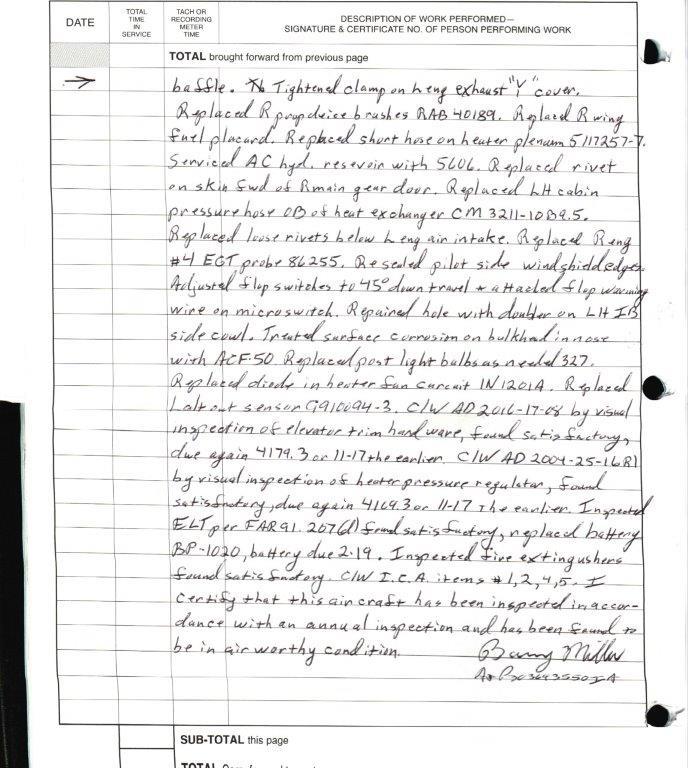 DATE
TOTAL TIME IN SERVICE
TACH OR RECORDING METER TIME
DESCRIPTION OF WORK PERFORMED—
SIGNATURE & CERTIFICATE NO. OF PERSON PERFORMING WORK
TOTAL brought forward from previous page
→ baffle. Tightened clamp on L eng exhaust "Y" cover.
Replaced R prop deice brushes RAB 40189. Replaced R wing
fuel placard. Replaced short hose on heater plenum 5117257-7.
Serviced AC hyd. resevoir with 5606. Replaced rivet
on skin fwd of R main gear door. Replaced LH cabin
pressure hose OB of heat exchanger CM 3211-10B9.5.
Replaced loose rivets below L eng air intake. Replaced R eng
#4 EGT probe 86255. Resealed pilot side windshield edges.
Adjusted flap switches to 45° down travel + attached flap warning
wire on microswitch. Repaired hole with doubler on LH IB
side cowl. Treated surface corrosion on bulkhead in nose
with ACF-50. Replaced post light bulbs as needed 327.
Replaced diode in heater fan curcuit IN 1201A. Replaced
L alt out sensor G910094-3. C/W AD 2016-17-08 by visual
inspection of elevator trim hardware, found satisfactory,
due again 4179.3 or 11-17 the earlier. C/W AD 2004-25-16R1
by visual inspection of heater pressure regulator, found
satisfactory, due again 4169.3 or 11-17 the earlier. Inspected
ELT per FAR 91.207(d) found satisfactory, replaced battery
BP-1020, battery due 2-19. Inspected fire extingushers
found satisfactory. C/W I.C.A. items #1,2,4,5. I
certify that this aircraft has been inspected in accor-
dance with an annual inspection and has been found to
be in air worthy condition.
Barry Miller
A+P IA
SUB-TOTAL this page
TOTAL